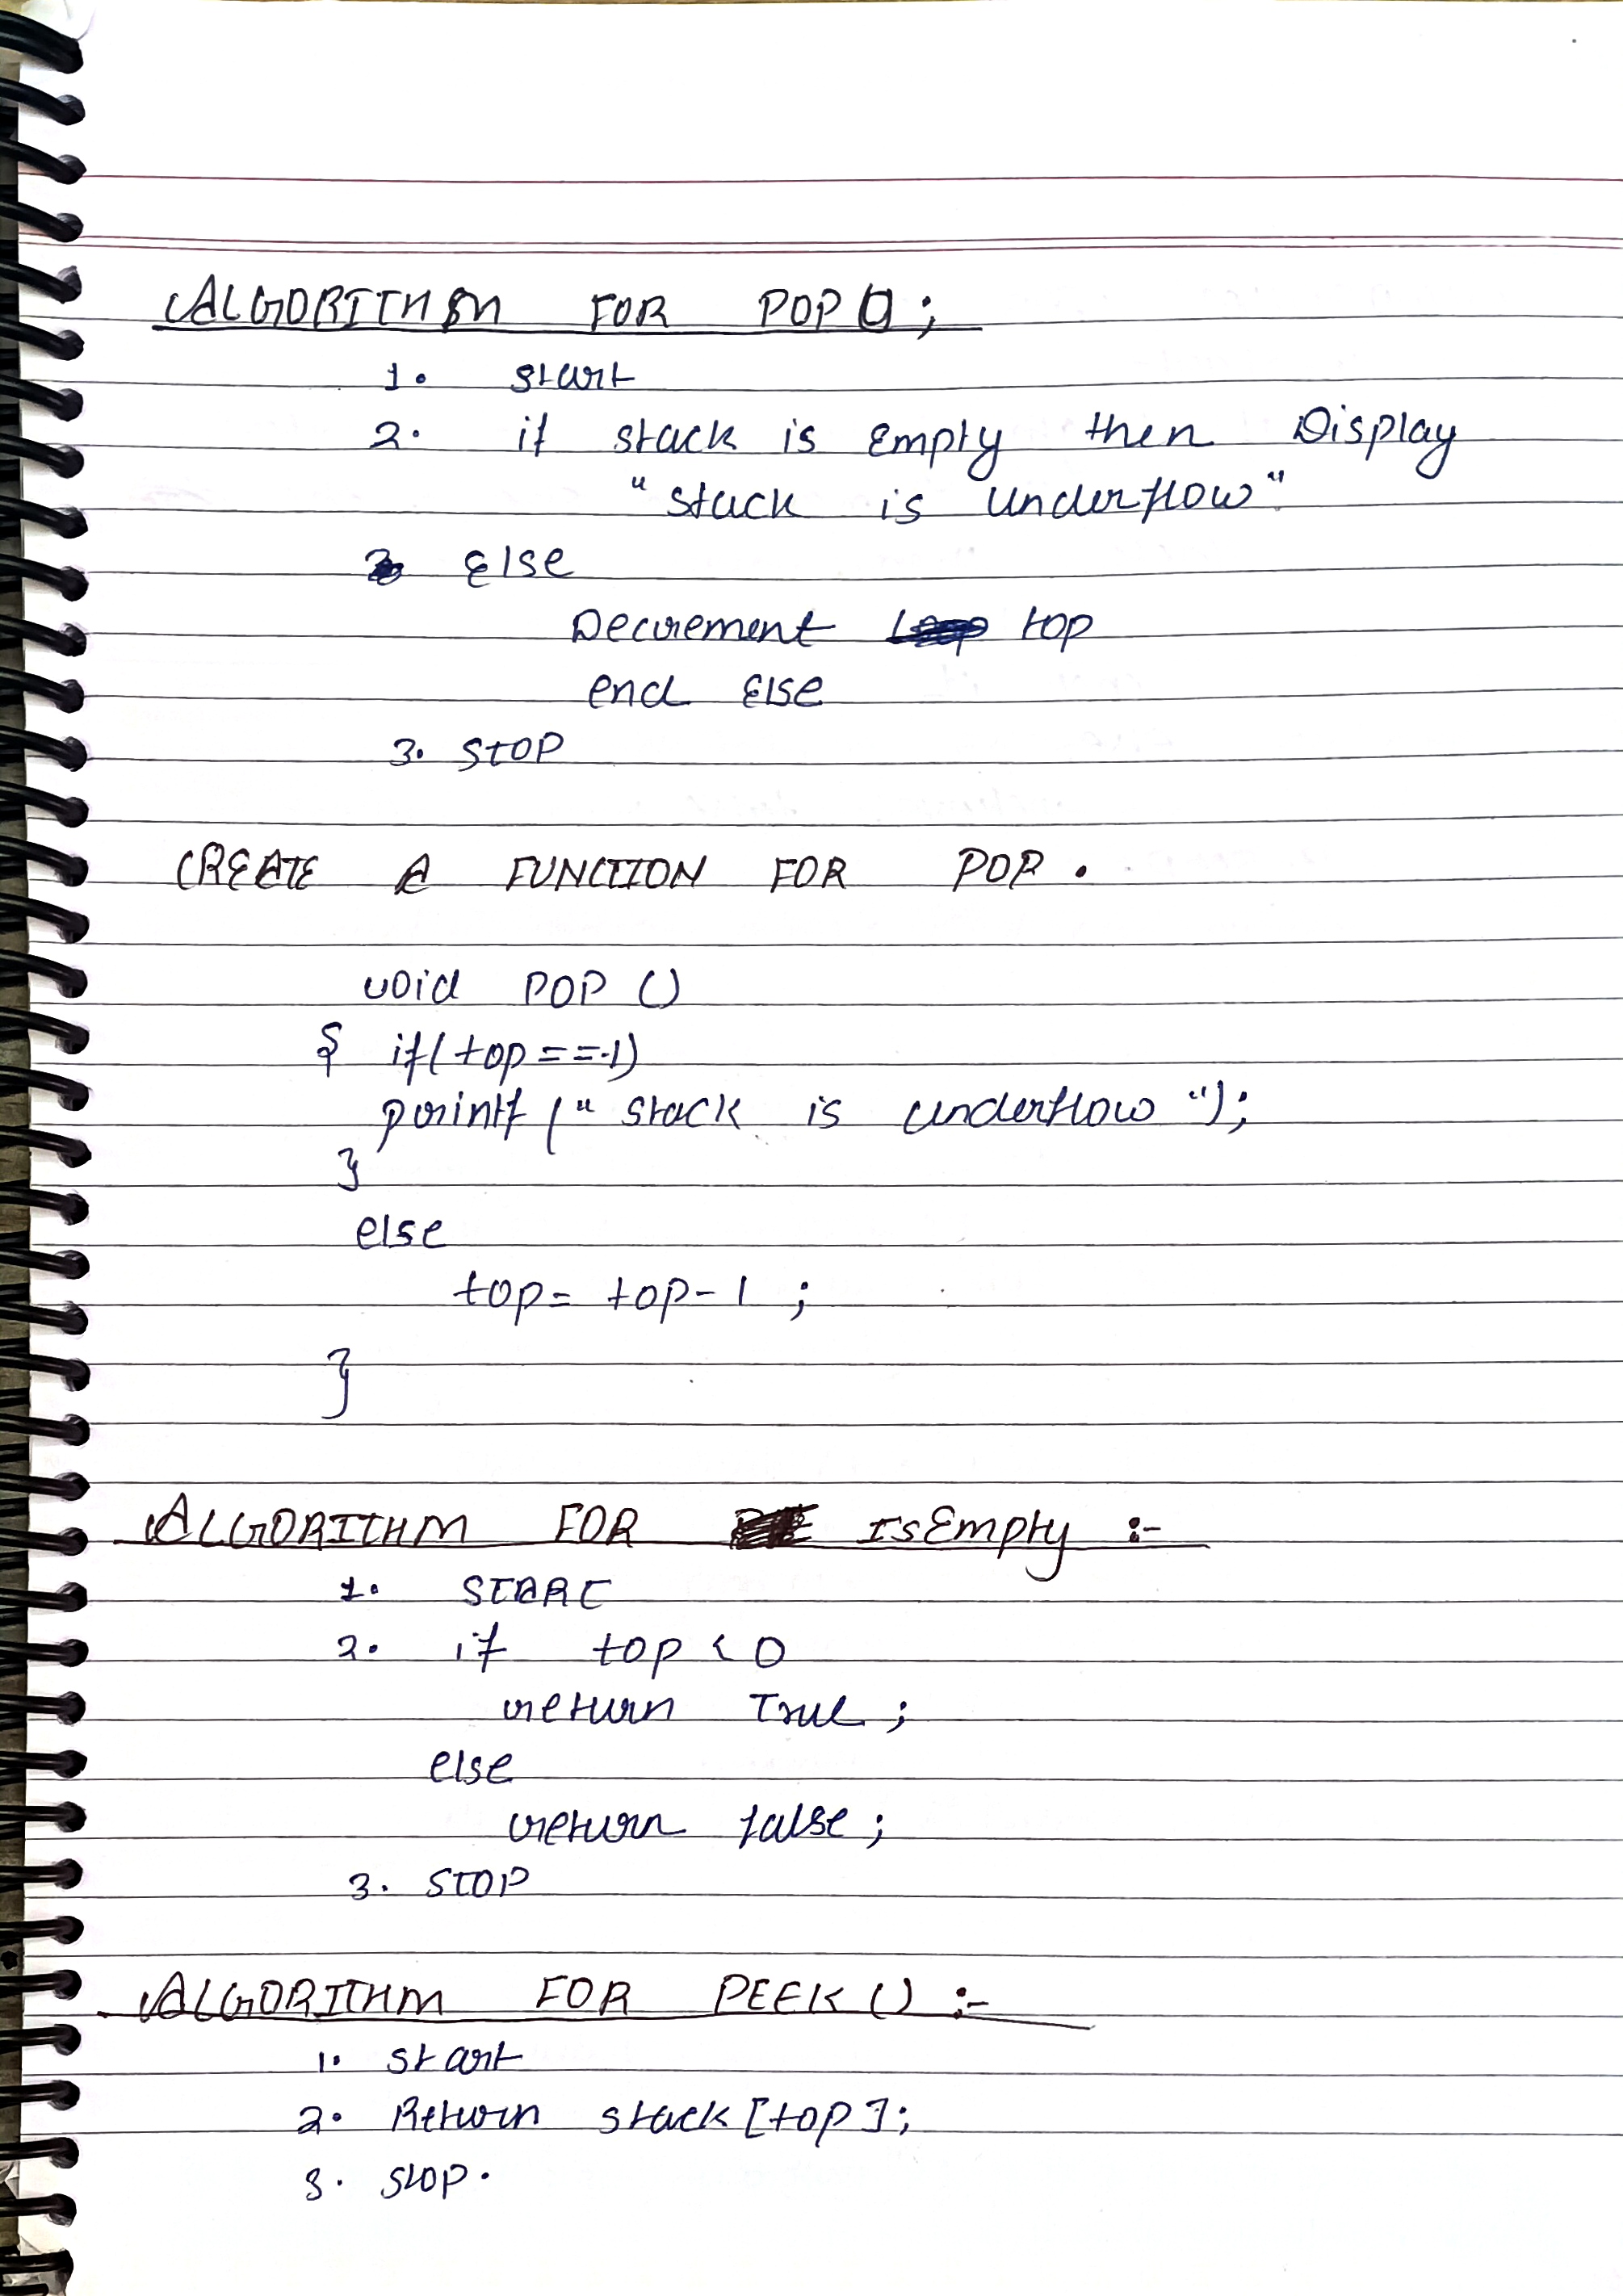 ALGORITHM FOR POP();
1. start
2. if stack is Empty then Display
"stack is underflow"
Else
Decrement top
end Else
3. STOP
CREATE A FUNCTION FOR POP.
void POP ()
{ if(top==-1)
printf ("stack is underflow");
}
else
top= top-1 ;
}
ALGORITHM FOR IsEmpty :-
1. START
2. if top < 0
return True ;
else
return false ;
3. STOP
ALGORITHM FOR PEEK() :-
1. start
2. Return stack [top];
3. stop.